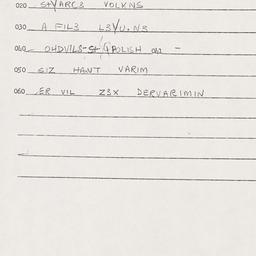 020 STYARC3 VOLKNS
030 A FIL3 L3YU.NS
040 OHDVILS-St POLISH on -
050 SIZ HANT VARIM
060 ER VIL Z3X DERVARIMIN